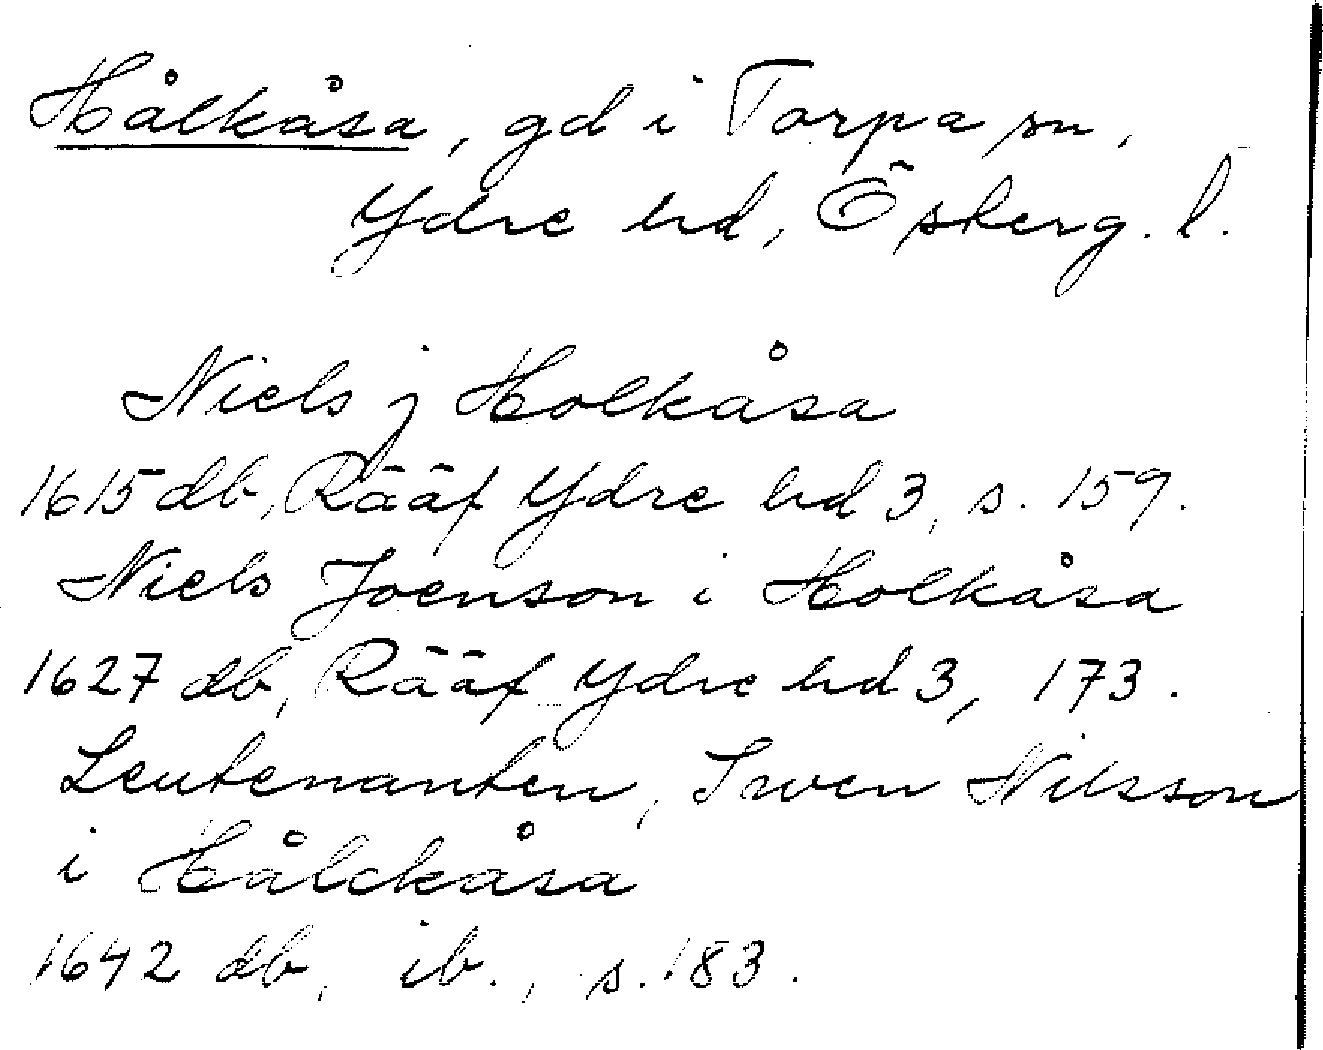 Hålkåsa, gd i Torpa sn,
Ydre hd, Österg. l.
Niels j Holkåsa
1615 db, Rääf Ydre hd 3, s. 159.
Niels Joenson i Holkåsa
1627 db, Rääf Ydre hd 3, 173.
Leutenanten, Swen Nilsson
i Hålckåsa
1642 db, ib., s. 183.